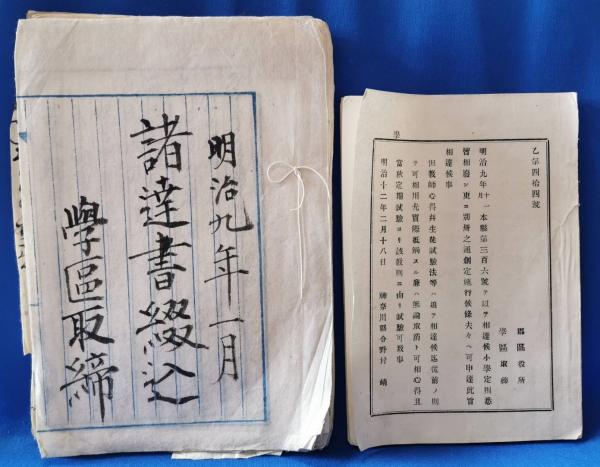 明治九年一月
諸達書綴込
學區取締
乙第四拾四號
郡區役所
學區取締
明治九年十一月本縣第三百六號ヲ以テ相達候小學定則悉
皆相廢シ更ニ別冊之通創定施行候條夫々ヘ可申達此旨
相達候事
但敎師心得幷生徒試驗法等ハ追テ相達候迄從前ノ則
ヲ可相用尤實際抵觸スル廉ハ無論取消ト可相心得且
當秋定期試驗ヨリ該敎則ニ由リ試驗可致事
明治十二年二月十八日 神奈川縣令野村 靖
學